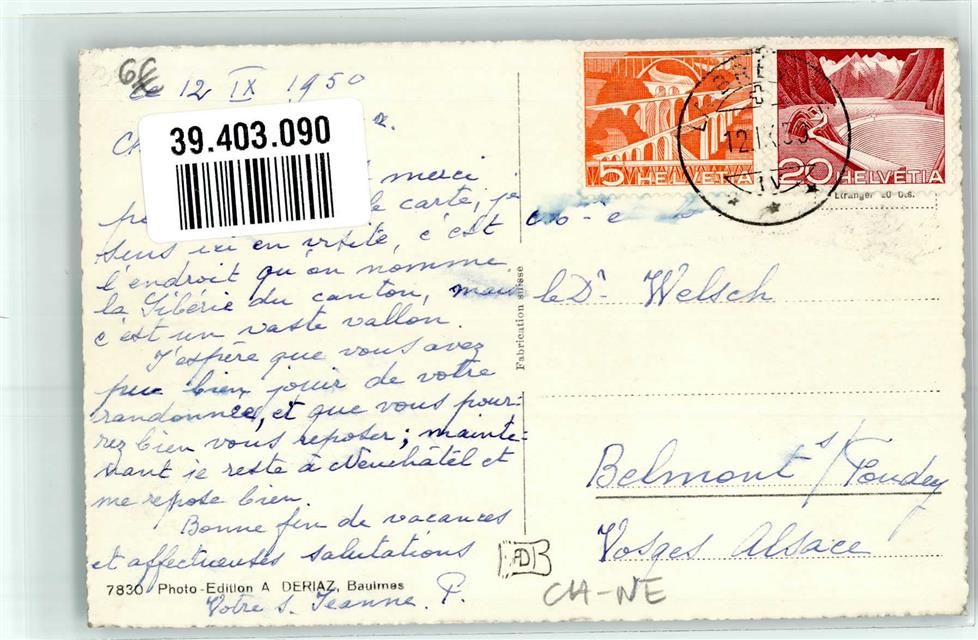 le 12 IX 1950
39.403.090
merci
carte, je
suis ici en visite, c'est
l'endroit qu'on nomme
la Sibérie du canton, mais
c'est un vaste vallon.
J'espère que vous avez
pu bien jouir de votre
randonnée, et que vous pour-
rez bien vous reposer; mainte-
nant je reste à Neuchâtel et
me repose bien.
Bonne fin de vacances
et affectueuses salutations
7830 Photo-Edition A DERIAZ, Baulmes
Votre s. Jeanne. P.
Fabrication suisse
5 HELVETIA
20 HELVETIA
12.IX.50
IV
Etranger 20 cts.
le Dr Welsch
Belmont s/ Foudey
Vosges Alsace
CH-NE